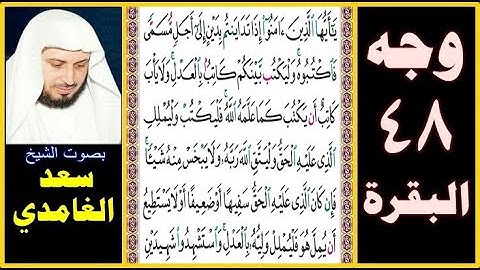 وجه
٤٨
البقرة
يَٰٓأَيُّهَا ٱلَّذِينَ ءَامَنُوٓا۟ إِذَا تَدَايَنتُم بِدَيْنٍ إِلَىٰٓ أَجَلٍ مُّسَمًّى
فَٱكْتُبُوهُ ۚ وَلْيَكْتُب بَّيْنَكُمْ كَاتِبٌۢ بِٱلْعَدْلِ ۚ وَلَا يَأْبَ
كَاتِبٌ أَن يَكْتُبَ كَمَا عَلَّمَهُ ٱللَّهُ ۚ فَلْيَكْتُبْ وَلْيُمْلِلِ
ٱلَّذِى عَلَيْهِ ٱلْحَقُّ وَلْيَتَّقِ ٱللَّهَ رَبَّهُۥ وَلَا يَبْخَسْ مِنْهُ شَيْـًٔا ۚ
فَإِن كَانَ ٱلَّذِى عَلَيْهِ ٱلْحَقُّ سَفِيهًا أَوْ ضَعِيفًا أَوْ لَا يَسْتَطِيعُ
أَن يُمِلَّ هُوَ فَلْيُمْلِلْ وَلِيُّهُۥ بِٱلْعَدْلِ ۚ وَٱسْتَشْهِدُوا۟ شَهِيدَيْنِ
بصوت الشيخ
سعد
الغامدي